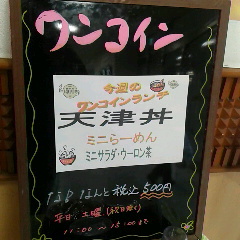 ワンコイン
今週の
ワンコインランチ
天津丼
ミニらーめん
ミニサラダ・ウーロン茶
なんとほんと税込500円
平日、土曜(祝日除く)
11:00〜15:00まで